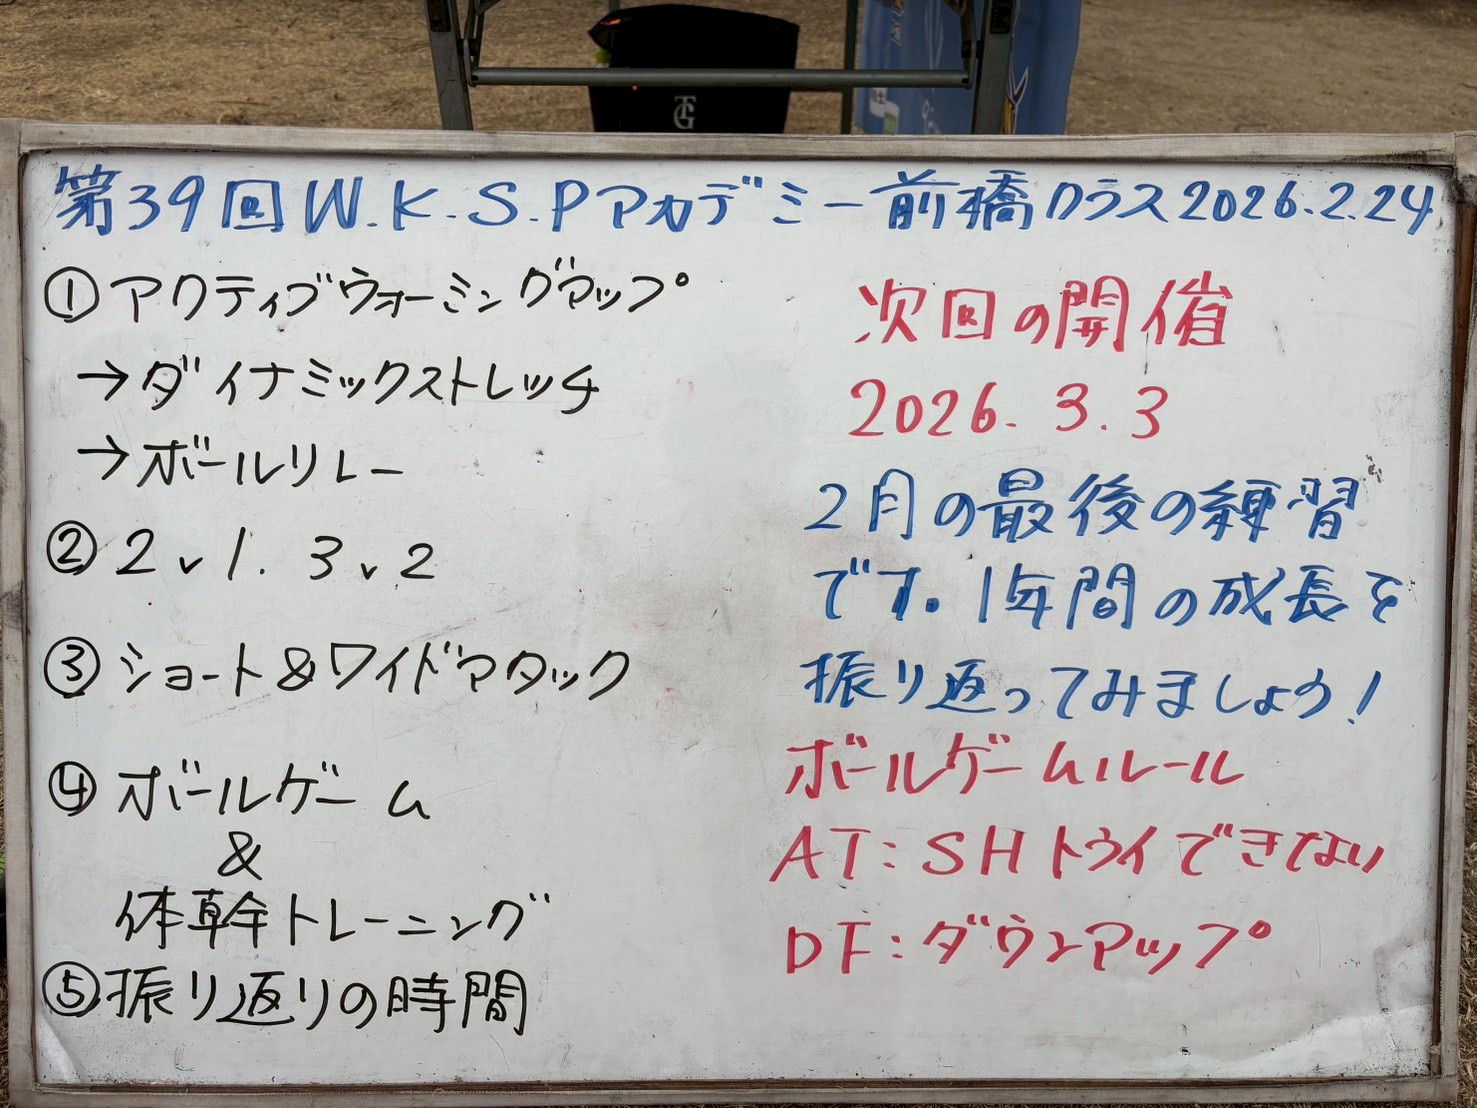 第39回W.K.S.Pアカデミー前橋クラス2026.2.24
①アクティブウォーミングアップ
→ダイナミックストレッチ
→ボールリレー
②2v1.3v2
③ショート&ワイドアタック
④ボールゲーム
&
体幹トレーニング
⑤振り返りの時間
次回の開催
2026.3.3
2月の最後の練習
です。1年間の成長を
振り返ってみましょう!
ボールゲームルール
AT:SHトライできない
DF:ダウンアップ